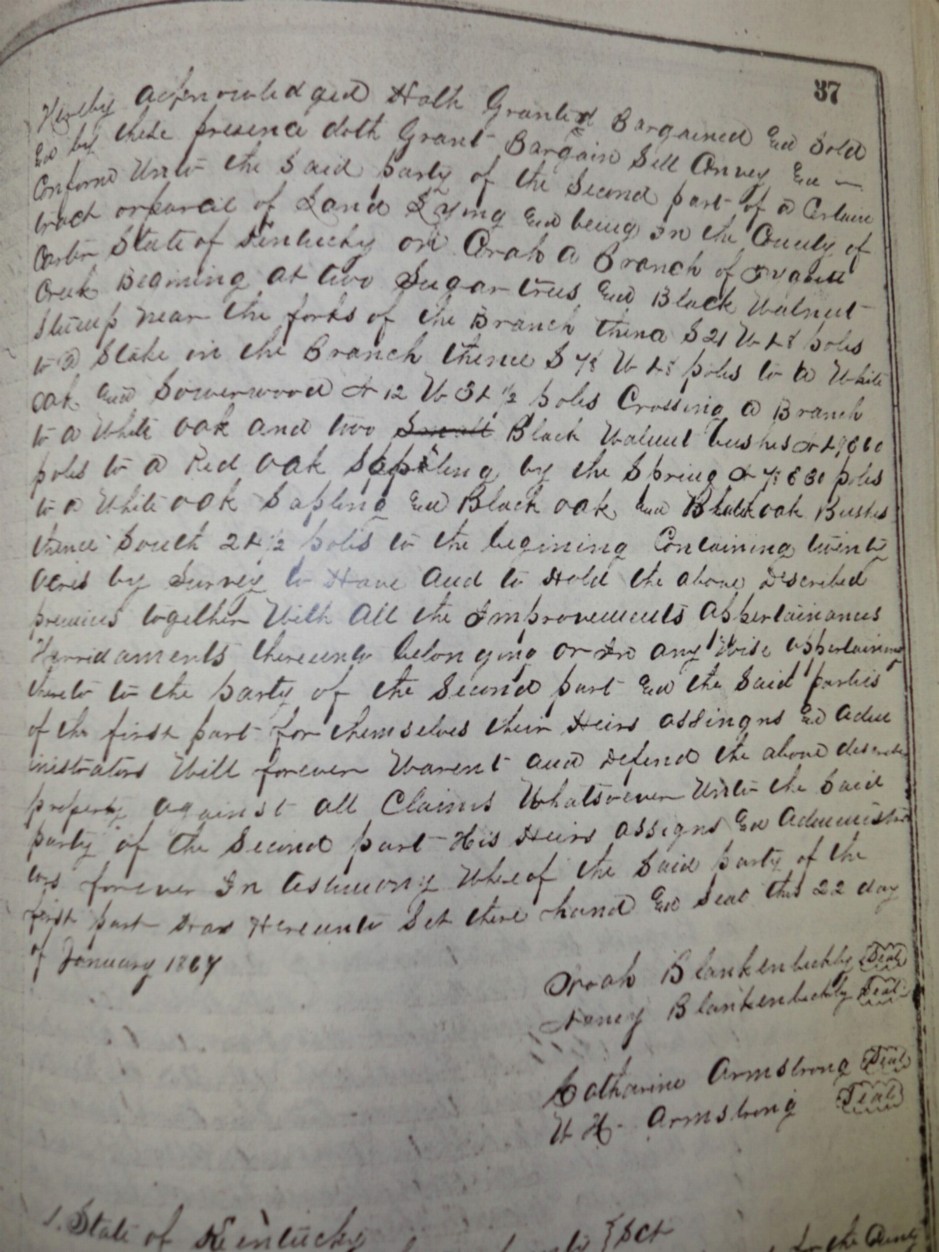 37
Hereby acknowledged Hath Granted Bargained and Sold
and by these presence doth Grant Bargain Sell Convey and
Conform Unto the Said party of the Second part of a Certain
tract or parcel of Land Lying and being in the County of
Carter State of Kentucky on a Branch of
Creek Begining at two Sugar trees and Black Walnut
Stump near the forks of the Branch thence S 21 W poles
to a Stake in the Branch thence S W poles to a White
oak and Sowerwood N 12 W 34 ½ poles Crossing a Branch
to a White oak and two Small Black Walnut bushes N 60
poles to a Red oak Sapling by the Spring N E 30 poles
to a White oak Sapling and Black oak and Black oak Bushes
thence South 24 ½ poles to the begining Containing
acres by Survey to Have and to Hold the above Described
premices together With all the Improvements appertainances
Herridaments thereunto belonging or In any Wise appertaining
thereto to the party of the Second part and the Said parties
of the first part for themselves their Heirs assingns and admi
nistrators Will forever Warent and Defend the above
property against all Claims Whatsoever Unto the Said
party of the Second part His Heirs assigns and Administra
tors forever In testimony Whereof the Said party of the
first part Hereunto Set there hand and Seal this 22 day
of January 1867
Noah Blankenbickly Seal
Nancy Blankenbickly Seal
Catharine Armstrong Seal
W H. Armstrong Seal
State of Kentucky } Sct